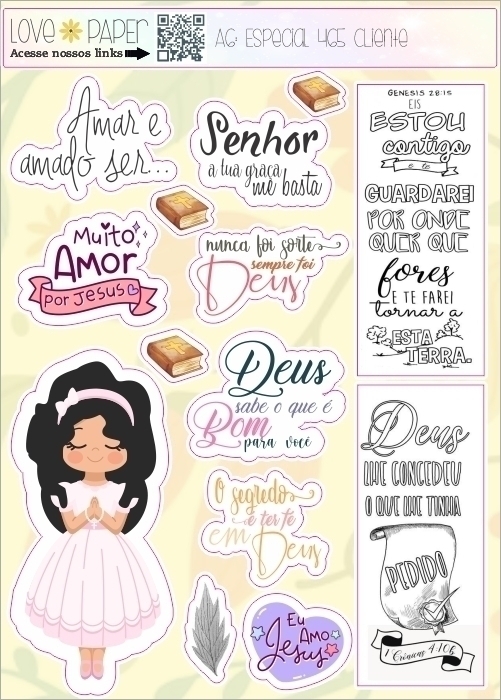 LOVE PAPER
Acesse nossos links
AG: ESPECIAL 465 CLIENTE
Amar e
amado ser...
Senhor
a tua graça
me basta
Muito
AMOR
por JESUS
nunca foi sorte
sempre foi
Deus
Deus
sabe o que é
Bom
para você
O segredo
é ter fé
em
Deus
Eu
AMO
Jesus
GENESIS 28:15
EIS
ESTOU
contigo
e te
GUARDAREI
POR ONDE
QUER QUE
fores
E TE FAREI
tornar a
ESTA
TERRA.
Deus
LHE CONCEDEU
O QUE LHE TINHA
PEDIDO
1 Crônicas 4:10b